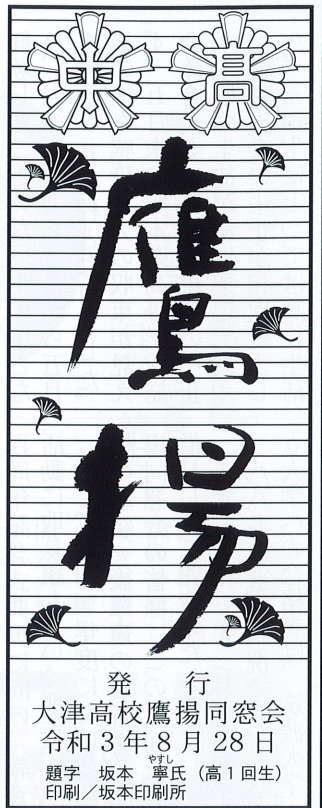 中 高
鷹揚
発 行
大津高校鷹揚同窓会
令和3年8月28日
題字 坂本 寧氏(高1回生)
やすし
印刷/坂本印刷所